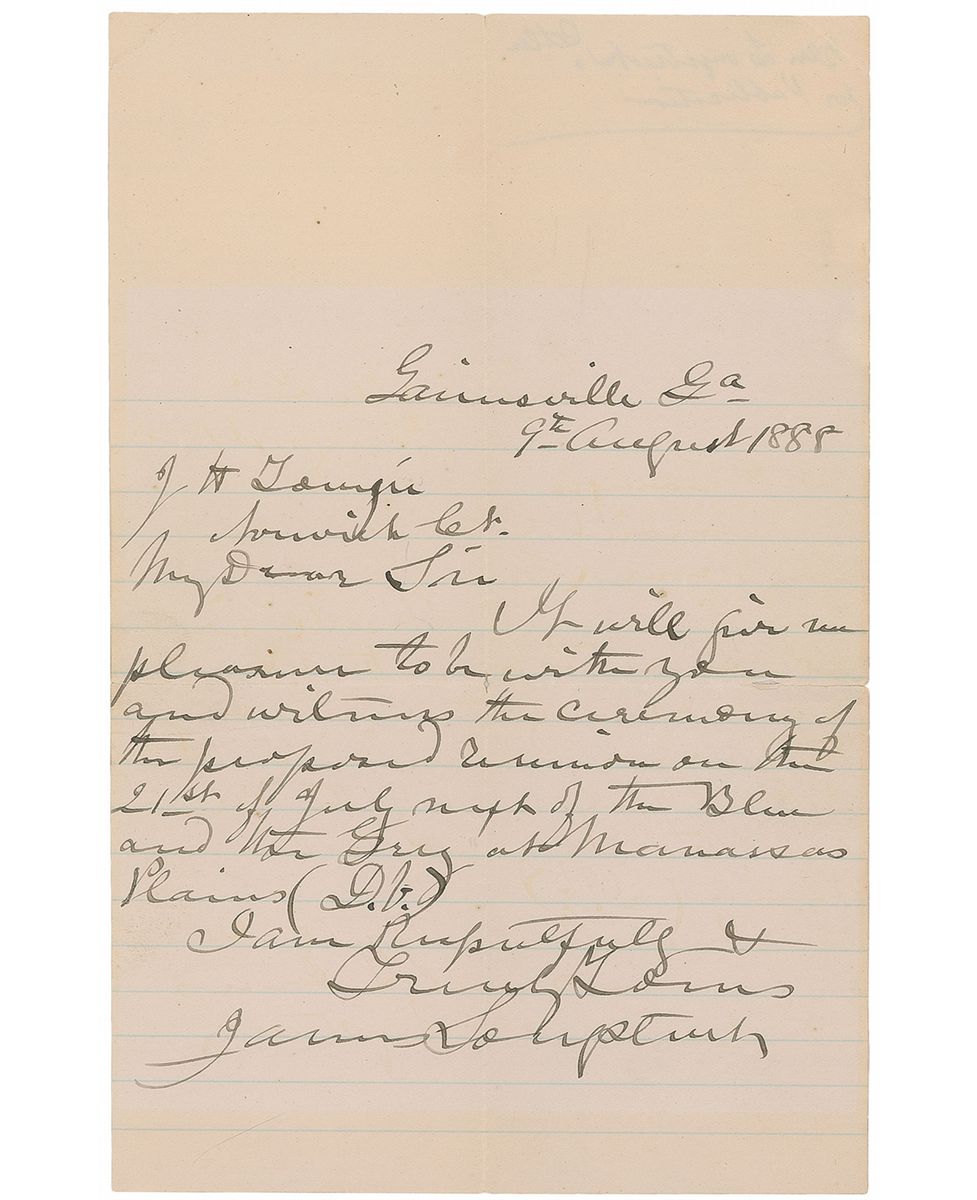 Gainsville Ga
9th August 1888
J H
Norwich Ct.
My Dear Sir
It will give me
pleasure to be with you
and witness the ceremony of
the proposed reunion on the
21st of July next of the Blue
and the Grey at Manassas
Plains (D.V.)
I am Respectfully &
Truly Yours
James Longstreet